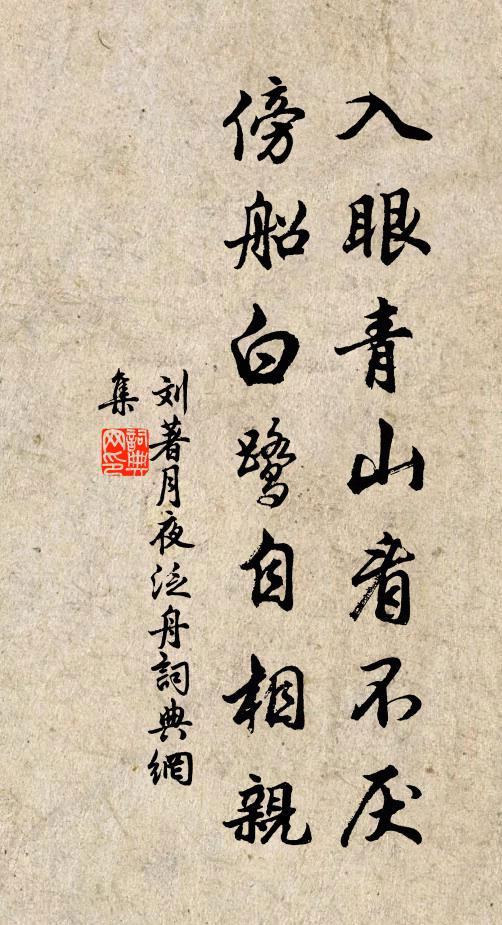 入眼青山看不厌
傍船白鹭自相親
刘著月夜泛舟詞典網
集
詞典网印